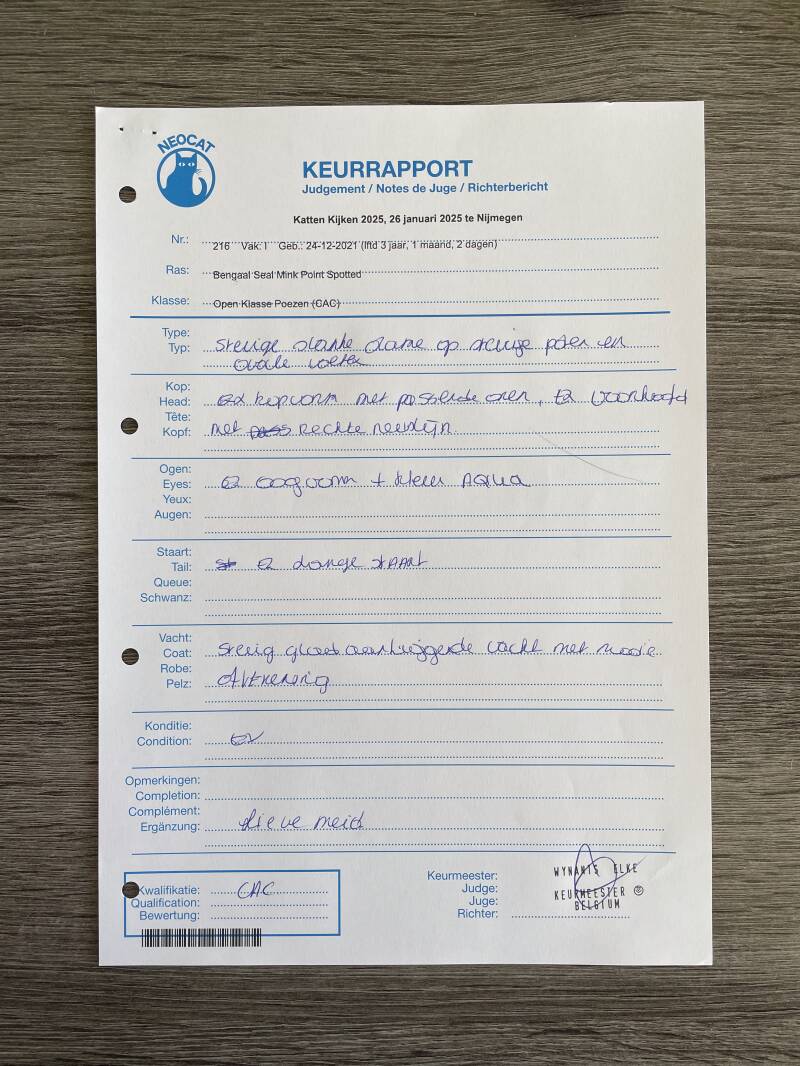 NEOCAT
KEURRAPPORT
Judgement / Notes de Juge / Richterbericht
Katten Kijken 2025, 26 januari 2025 te Nijmegen
Nr.: 216 Vak: I Geb.: 24-12-2021 (lftd 3 jaar, 1 maand, 2 dagen)
Ras: Bengaal Seal Mink Point Spotted
Klasse: Open Klasse Poezen (CAC)
Type:
Typ: stevige slanke dame op stevige poten en
ovale voeten
Kop:
Head: Ex kopvorm met passende oren, Ex voorhoofd
Tête:
Kopf: met rechte neuslijn
Ogen:
Eyes: Ex oogvorm + kleur Aqua
Yeux:
Augen:
Staart:
Tail: Ex lange staart
Queue:
Schwanz:
Vacht:
Coat: stevig glad aanliggende vacht met mooie
Robe:
Pelz: Aftekening
Konditie:
Condition: Ex
Opmerkingen:
Completion:
Complément:
Ergänzung: lieve meid
Kwalifikatie: CAC
Qualification:
Bewertung:
Keurmeester: WYNANTS ELKE
Judge: KEURMEESTER
Juge: BELGIUM
Richter: